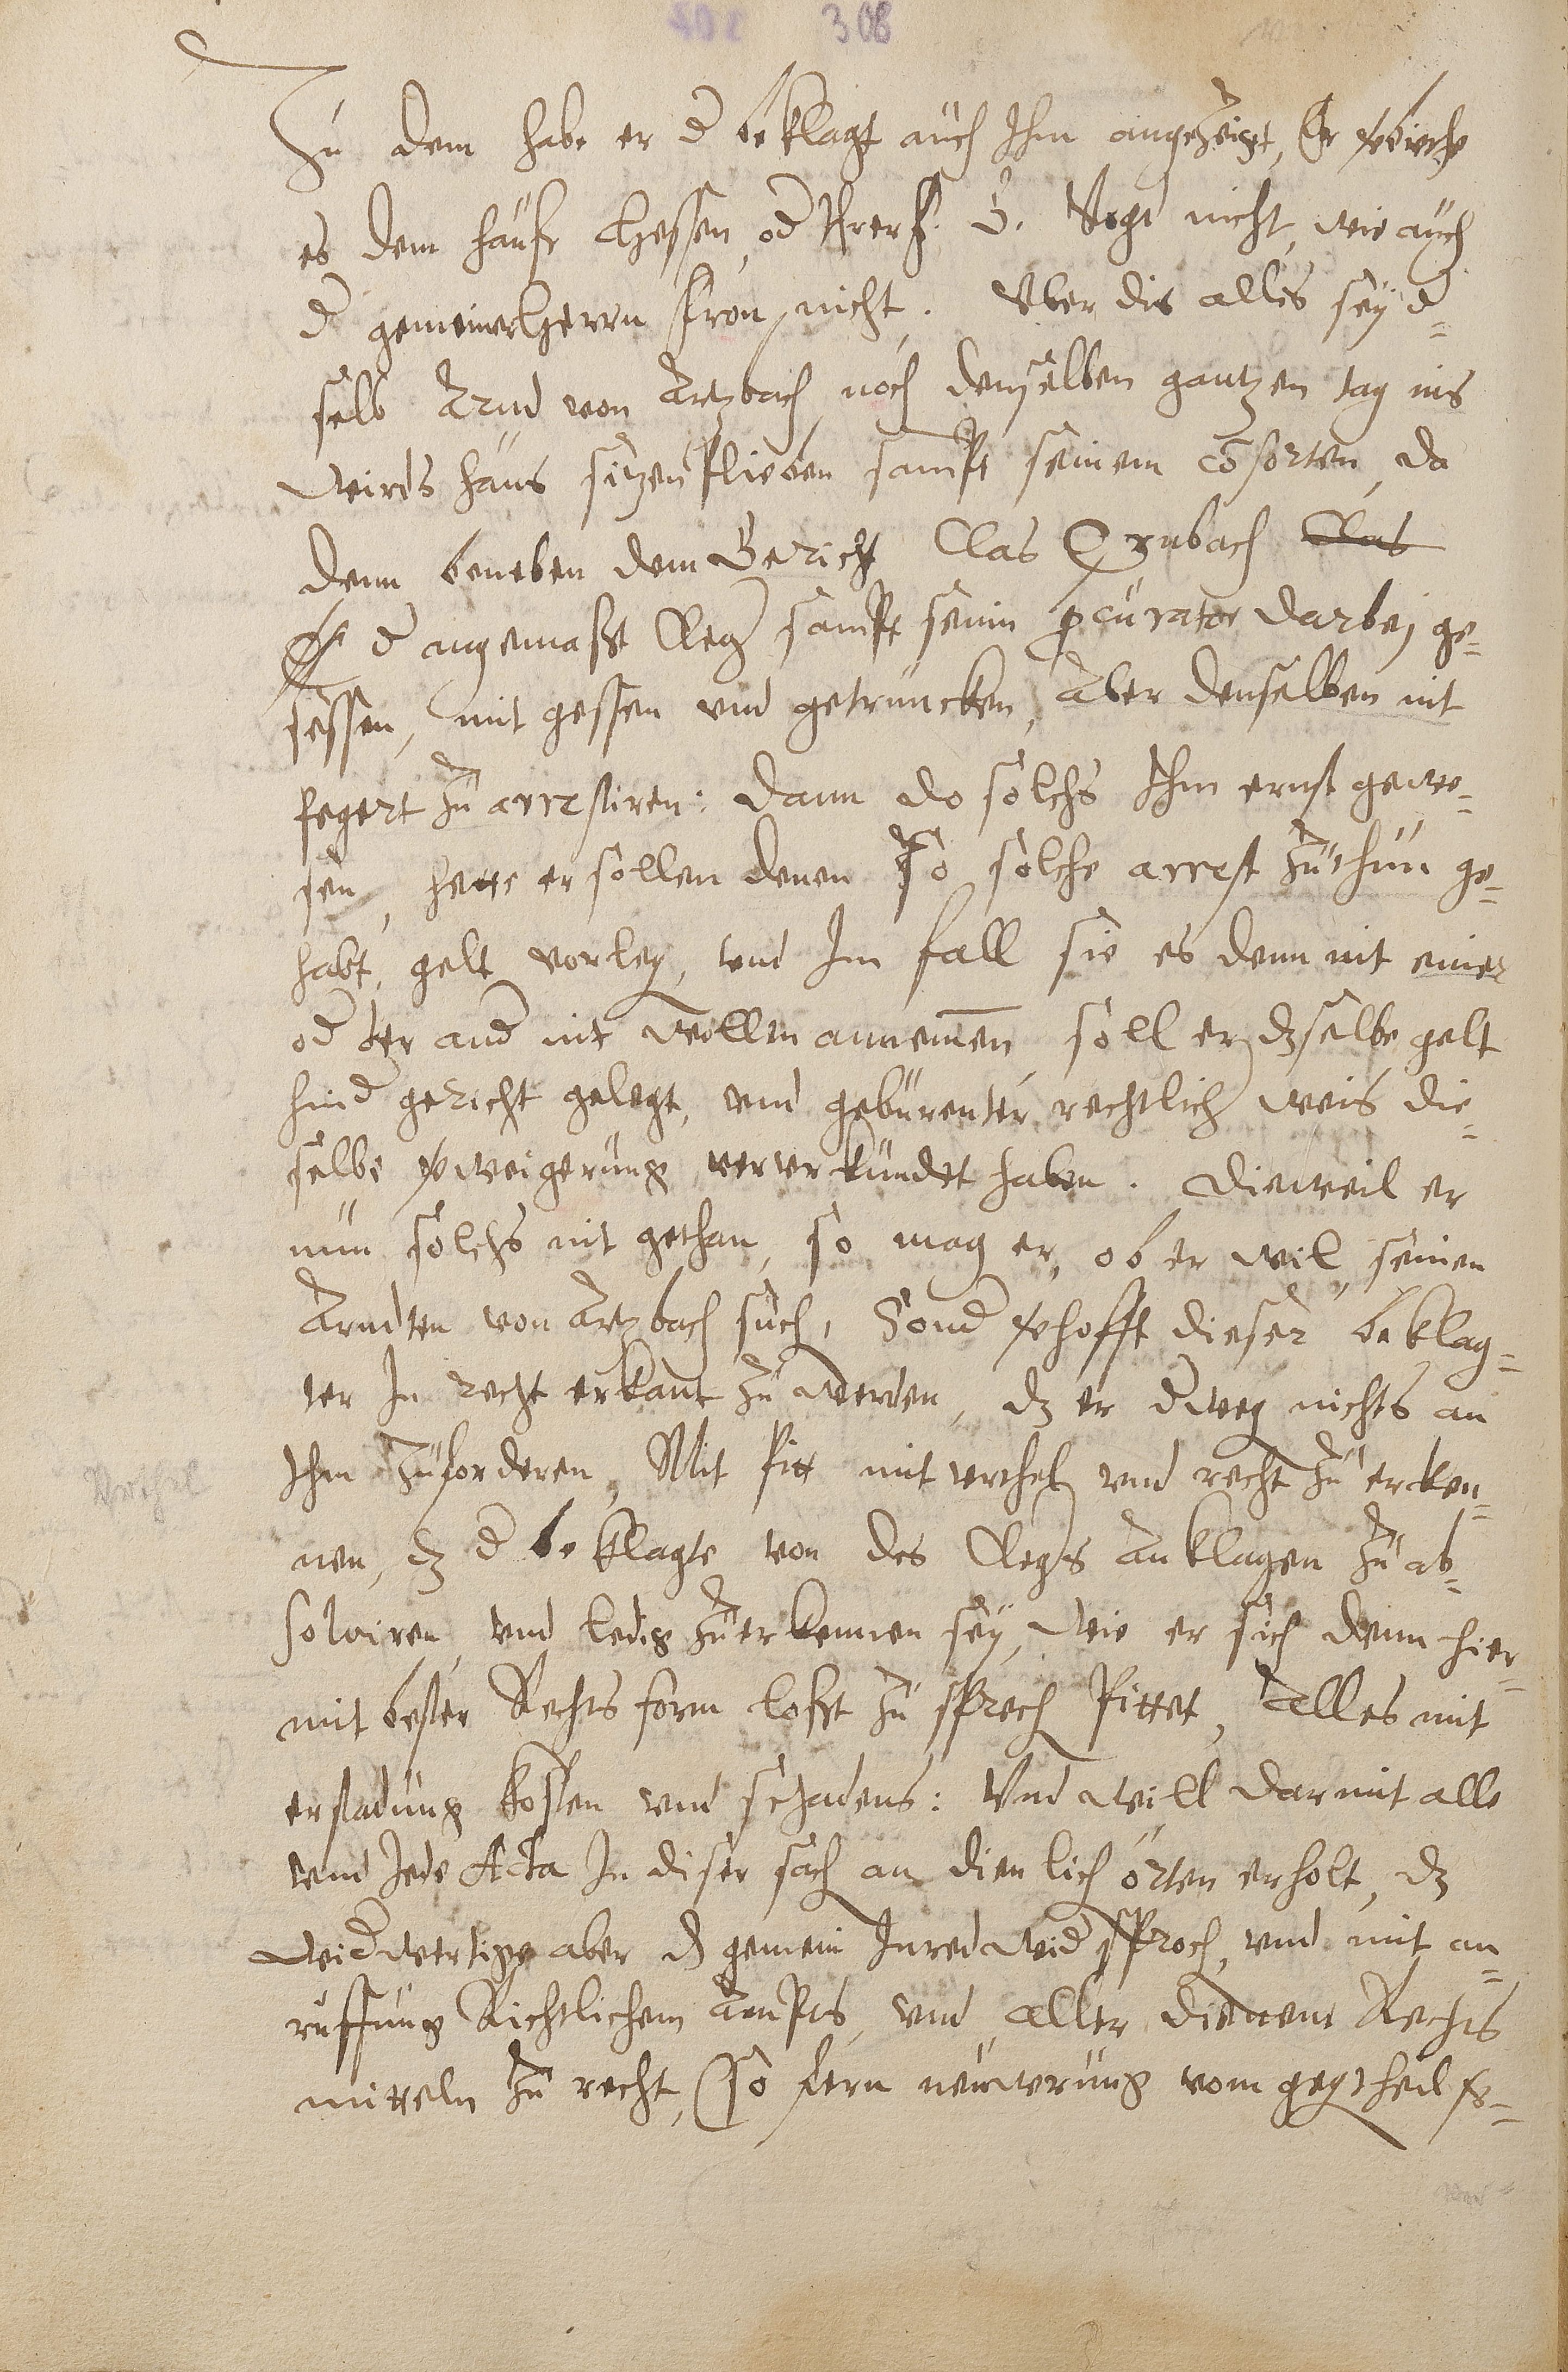 308
Zu dem habe er d beklagt auch Ihm angezeigt, Er
es dem hauße Hessen, od Ihrer f. G. Vogt nicht, wie auch
d gemeiner Herrn fron, nicht. Vber dis alles sey d=
selb Arnd von Artzbach noch denselben gantzen tag ins
wirds haus sitzen plieben sampt seinem cosorten, da
denn beneben dem Gericht Clas Ernbach Clas
d angemaßt Cleg sampt seinn pcurator darbej ge=
sessen, mit gessen vnd getruncken, Aber denselben nit
begert zu arrestiren: Dann do solchs Ihm ernst gewe=
sen, hette er sollen denen so solche arrest zuthun ge=
habt, gelt vorleg, vnd Im fall sie es denn mit einer
od der and nit wollen annemen, soll er dzselbe gelt
hind gericht gelegt, vnd gebürenter rechtlich weis die=
selbe verweigerung ververkündet haben. Dieweil er
nun solchs nit gethan, so mag er, ob er wil, seinen
Arndten von Artzbach such, Sond verhofft dieser beklag=
ter In recht erkant zu werden, dz er dweg nichts an
Ihm zuforderen, Mit bitt mit vrthel vnd recht zu erken=
nen, dz d beklagte von des Clegs Anklagen zu ab=
solviren, vnd ledig zuerkennen sey, Wie er sich denn hier=
mit bester Rechts form loßt zu sprech bittet, Alles mit
erstadung kosten vnd schadens: Vnd will darmit alle
vnd Jede Acta In diser sach an dienlich örten erholt, dz
widwertige aber d gemein Inred widsproch, vnd mit an=
ruffung Richtlichem Ampts, vnd aller dienent Rechts
mitteln zu recht, (so fern neuwerung vom gegtheil